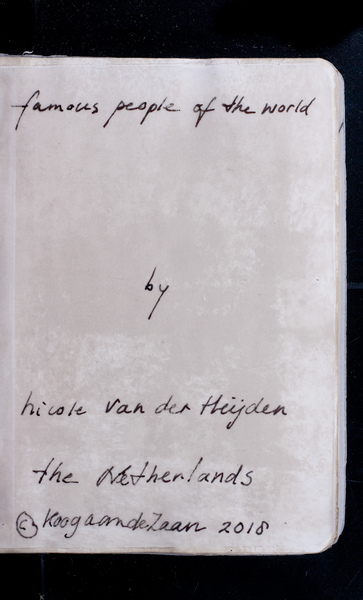 famous people of the world
by
nicole van der Heijden
the Netherlands
© KoogaandeZaan 2018